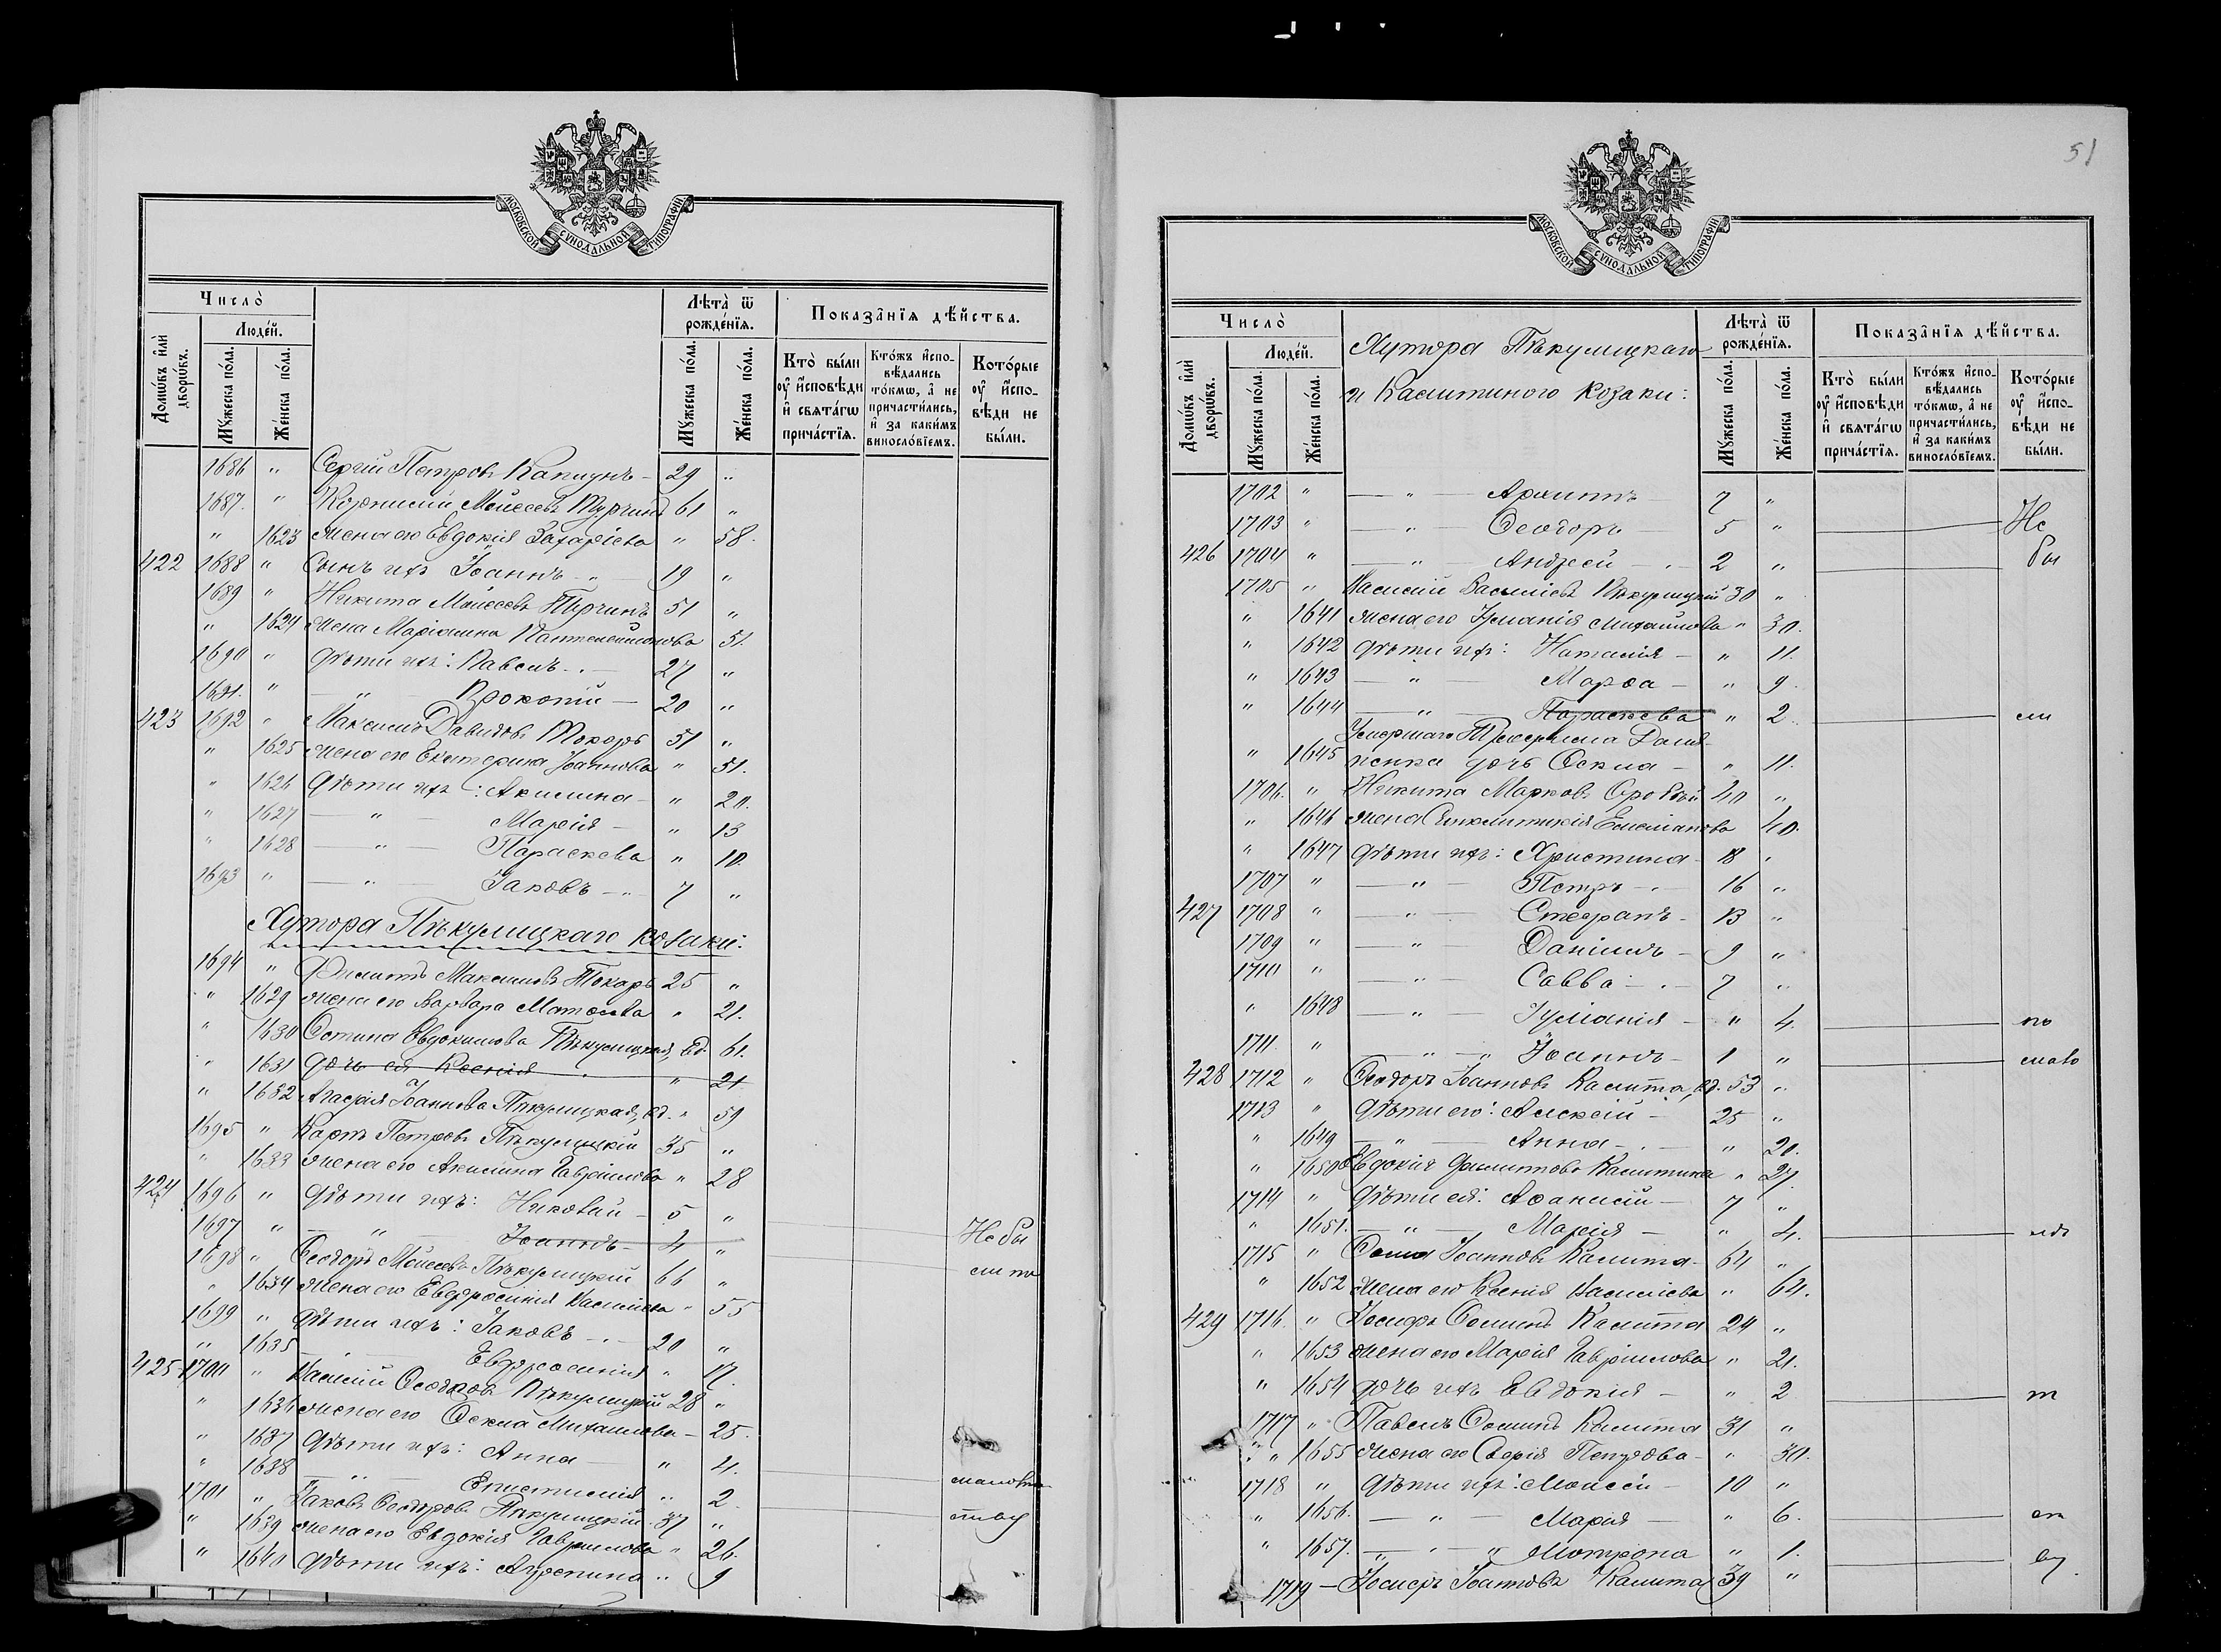 МОСКОВСКОЙ СѴНОДАЛЬНОЙ ТИПОГРАФІИ
Число̀
Людéй.
Домѡ́въ и҆лѝ дворѡ́въ.
Мꙋ́жеска по́ла.
Же́нска по́ла.
Лѣта̀ ѿ рожде́нїѧ.
Мꙋ́жеска по́ла.
Же́нска по́ла.
Показа̑нїѧ дѣ́йства.
Кто̀ бы́ли оу҆ и҆сповѣ́ди и҆ свѧта́гѡ прича́стїѧ.
Кто́жъ и҆спо-вѣ́дались то́кмѡ, а҆ не причасти́лись, и҆ за каки́мъ винословїемъ.
Кото́рые оу҆ и҆спо-вѣ́ди не бы́ли.
1686 " Сергій Петровъ Капшунъ - 29 "
1687. " Моисеевъ Турчинъ 61 "
" 1623 жена его Евдокія Захаріева " 58.
422 1688 " Сынъ ихъ Іоаннъ - " - 19 "
1689 " Никита Моисеевъ Турчинъ 51 "
" 1624 жена Маріанна Пантелеймонова 51.
1690 " дѣти ихъ: Павелъ - . - 27 "
1691. " - " - Прокопій - 20 "
423 1692 " Максимъ Давидовъ Токарь 51 "
" 1625 жена его Екатерина Іоаннова " 51.
" 1626 дѣти ихъ: Акилина - " 20.
" 1627 - " - Марія - " 13
" 1628 - " - Параскева " 10.
1693 " - " - Іаковъ - " - 7 "
Хутора Пѣкулицкаго козаки:
1694 " Филиппъ Максимовъ Токарь 25 "
" 1629 жена его Варвара Матѳеева " 21.
" 1630 Устина Евдокимова Пѣкулицкая, вд. 61.
" 1631 дочь ея Ксенія " 21
" 1632 Агафія Іоаннова Пѣкулицкая, вд. " 59
1695 " Карпъ Петровъ Пѣкулицкій 35 "
" 1633 жена его Акилина Гавріилова " 28
424 1696 " дѣти ихъ: Николай - 5 "
1697 " - " - Іоаннъ - 4 " Не бы
1698 " Ѳеодоръ Моисеевъ Пѣкулицкій 66 " ли по
" 1634 жена его Евфросинія Василіева " 55
1699 " дѣти ихъ: Іаковъ - . - 20 "
" 1635 - " - Евфросинія " 17.
425 1700 " Василій Ѳеодоровъ Пѣкулицкій 28 "
" 1636 жена его Ѳекла Михаилова - 25.
" 1637 дѣти ихъ: Анна - " 4.
" 1638 - " - Епистимія " 2. малолѣт
1701 " Іаковъ Ѳеодоровъ Пѣкулицкій 37 "
" 1639 жена его Евдокія Гавріилова " 26.
" 1640 дѣти ихъ: Агрепина " 9
51
МОСКОВСКОЙ СѴНОДАЛЬНОЙ ТИПОГРАФІИ
Число̀
Людéй.
Домѡ́въ и҆лѝ дворѡ́въ.
Мꙋ́жеска по́ла.
Же́нска по́ла.
Хутора Пѣкулицкаго
и Калитиного козаки:
Лѣта̀ ѿ рожде́нїѧ.
Мꙋ́жеска по́ла.
Же́нска по́ла.
Показа̑нїѧ дѣ́йства.
Кто̀ бы́ли оу҆ и҆сповѣ́ди и҆ свѧта́гѡ прича́стїѧ.
Кто́жъ и҆спо-вѣ́дались то́кмѡ, а҆ не причасти́лись, и҆ за каки́мъ винословїемъ.
Кото́рые оу҆ и҆спо-вѣ́ди не бы́ли.
1702 " - " - 7 "
1703 " - " - Ѳеодоръ 5 " Не
426 1704 " - " - Андрей - . - 2 " бы
1705 " Василій Василіевъ Пѣкулицкій 30 "
" 1641 жена его Іуліанія Михайлова " 30.
" 1642 дѣти ихъ: Наталія - " 11.
" 1643 - " - Марѳа - " 9.
" 1644 - " - Параскева " 2. ли
Умершаго
" 1645 дочь Ѳекла - " 11.
1706. " Никита Марковъ 40 "
" 1646 жена Синклитикія Емеліанова 40.
" 1647 дѣти ихъ: Христина - 18 "
1707 " - " - Петръ - . - 16 "
427 1708 " - " - Стефанъ - 13 "
1709 " - " - Даніилъ - 9 "
1710 " - " - Савва - . - 7 "
" 1648 - " - Іуліанія - " 4. по
1711. " - " - Іоаннъ - 1 " мало
428 1712 " Ѳеодоръ Іоанновъ Калита, вд. 53 "
1713 " дѣти его: Алексій - 25 "
" 1649 - " - Анна - . - " 20.
" 1650 Евдокія Филиппова Калитина " 27.
1714 " дѣти ея: Аѳанасій - 7 "
" 1651. - " - Марія - " 4. лѣт
1715 " Ѳома Іоанновъ Калита - 64 "
" 1652 жена его Ксенія Василіева " 64.
429 1716. " Іосифъ Ѳоминъ Калита 24 "
" 1653 жена его Марія Гавріилова " 21.
" 1654 дочь ихъ Евдокія - " 2 т
1717 " Павелъ Ѳоминъ Калита 31 "
" 1655 жена его Петрова - " 30.
1718 " дѣти ихъ: Моисей - 10 "
" 1656. - " - Марія - " 6.
" 1657. - " - Матрона " 1.
1719 - Іосифъ Іоанновъ Калита 39 "